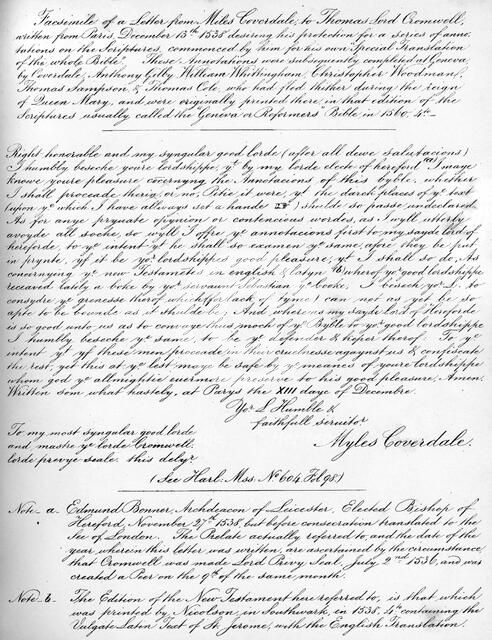 Facsimile of a Letter from Myles Coverdale, to Thomas Lord Cromwell,
written from Paris, December 13th 1538 desiring his protection for a series of anno=
tations on the Scriptures, commenced by him for his own Special Translation
of the whole Bible. These Annotations were subsequently completed at Geneva
by Coverdale, Anthony Gilby, William Whittingham, Christopher Woodman,
Thomas Sampson, & Thomas Cole, who had fled thither during the reign
of Queen Mary, and were originally printed there in that edition of the
Scriptures usually called the Geneva or Reformers' Bible in 1560, 4to
Right honorable and my syngular good lorde (after all dewe salutacions)
I humbly beseche youre lordshippe, yt by my lorde elect of hereford (a) I maye
knowe youre pleasure concernyng the Annotacions of this byble, whether
I shall proceade therin, or no. Pitie it were, yt the darck places of ye text
(upon ye which I have allwayes set a hande) shulde so passe undeclared.
As for anye pryuate opynion or contencious wordes, as I wyll utterly
avoyde all soche, so wyll I offre ye annotacions first to my sayde lord of
hereforde, to ye intent yt he shall so examen ye same, afore they be put
in prynte, yf it be yor lordshippes good pleasure, yt I shall so do. As
concernyng ye new Testamētes in english & latyn (b) wherof yor good lordshippe
receaved lately a boke by yor servaunt Sebastian ye Cooke, I besech yor L. to
consydre ye grenesse therof, which (for lack of tyme) can not as yet be so
apte to be bounde as it shulde be. And where as my sayde Lord of Hereforde
is so good unto us as to convaye thus moch of ye Byble to yor good lordshippe
I humbly beseche ye same, to be ye defender & keper therof. To ye
intent yt yf these men proceade in their cruelnesse agaynst us & confiscate
the rest, yet this at ye lest maye be safe by ye meanes of youre lordshippe
whom god ye allmightie euermore preserve to his good pleasure, Amen.
Written som what hastely, at Parys the XIII daye of Decembre.
Yor L Humble &
faithfull seruitor
Myles Coverdale.
To my most syngular good lorde
and mastre ye lorde Cromwell
lorde prevye seale. this delyr
(See Harl. Mss. No 604, Fol 98.)
Note a Edmund Bonner, Archdeacon of Leicester, Elected Bishop of
Hereford, November 27th 1538, but before consecration translated to the
See of London. The Prelate actually referred to, and the date of the
year wherein this letter was written, are ascertained by the circumstance
that Cromwell was made Lord Privy Seal, July 2nd 1536, and was
created a Peer on the 9th of the same month.
Note b. The Edition of the New Testament here referred to, is that which
was printed by Nicolson, in Southwark, in 1538, 4to containing the
Vulgate Latin Text of St. Jerome, with the English Translation.